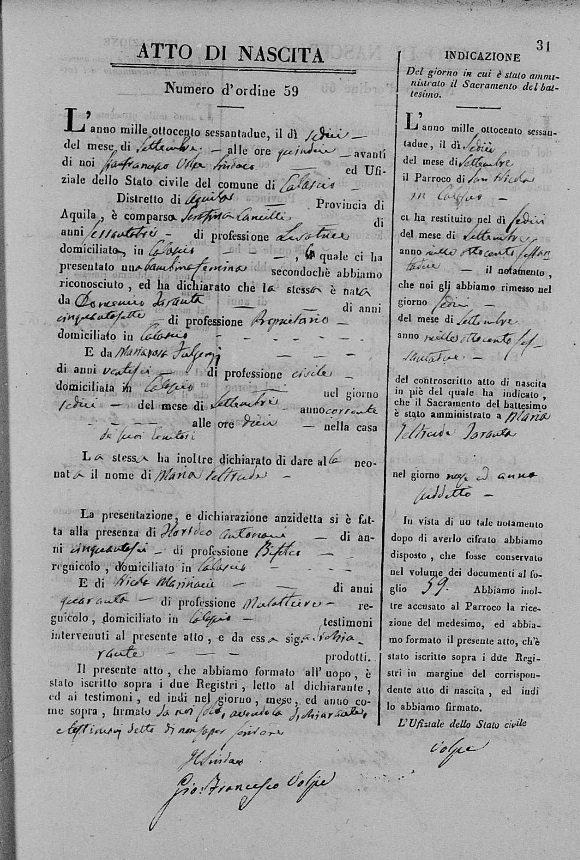 31
ATTO DI NASCITA
Numero d'ordine 59
L'anno mille ottocento sessantadue, il dì sedici –
del mese di Settembre – alle ore quindici – avanti
di noi Gianfrancesco Volpe Sindaco ed Ufi-
ziale dello Stato civile del comune di Calascio –
Distretto di Aquila – Provincia di
Aquila, è comparsa Serafina di
anni sessantatre – di professione Levatrice
domiciliata in Calascio – – – , la quale ci ha
presentato una bambina femina secondochè abbiamo
riconosciuto, ed ha dichiarato che la stessa è nata
da Domenico Taranta – di anni
cinquantasette – di professione Proprietario –
domiciliato in Calascio – – – –
E da Mariarosa Fulgenzi – – – –
di anni ventisei – di professione civile –
domiciliata in Calascio – – – nel giorno
sedici – del mese di Settembre – anno corrente
– – – – alle ore dieci – nella casa
de suoi Genitori
La stessa ha inoltre dichiarato di dare alla neo-
nata il nome di Maria Geltrude –
La presentazione, e dichiarazione anzidetta si è fat-
ta alla presenza di Antonacci – di an-
ni cinquantasei – di professione – re-
gnicolo, domiciliato in Calascio – –
E di Nicola – di anni
quaranta – di professione Mulattiere – re-
gnicolo, domiciliato in Calascio – testimoni
intervenuti al presente atto, e da essa sigra dichia-
rante – – – prodotti.
Il presente atto, che abbiamo formato all'uopo, è
stato iscritto sopra i due Registri, letto al dichiarante,
ed ai testimoni, ed indi nel giorno, mese, ed anno co-
me sopra, firmato da noi solo, avendo la dichiarante,
e testimonj detto di non saper scrivere
Il Sindaco
Gio: Francesco Volpe
INDICAZIONE
Del giorno in cui è stato ammi-
nistrato il Sacramento del bat-
tesimo.
L'anno mille ottocento sessan-
tadue, il dì Sedici
del mese di Settembre
il Parroco di San Nicola
in Calascio –
ci ha restituito nel dì sedici
del mese di Settembre
anno mille ottocento sessan
tadue – il notamento,
che noi gli abbiamo rimesso nel
giorno sedici –
del mese di Settembre
anno mille ottocento ses
santadue –
del controscritto atto di nascita
in piè del quale ha indicato,
che il Sacramento del battesimo
è stato amministrato a Maria
Geltrude Taranta
nel giorno mese ed anno
suddetto –
In vista di un tale notamento
dopo di averlo cifrato abbiamo
disposto, che fosse conservato
nel volume dei documenti al fo-
glio 59. Abbiamo inol-
tre accusato al Parroco la rice-
zione del medesimo, ed abbia-
mo formato il presente atto, ch'è
stato iscritto sopra i due Regi-
stri in margine del corrispon-
dente atto di nascita, ed indi
lo abbiamo firmato.
L'Ufiziale dello Stato civile
Volpe